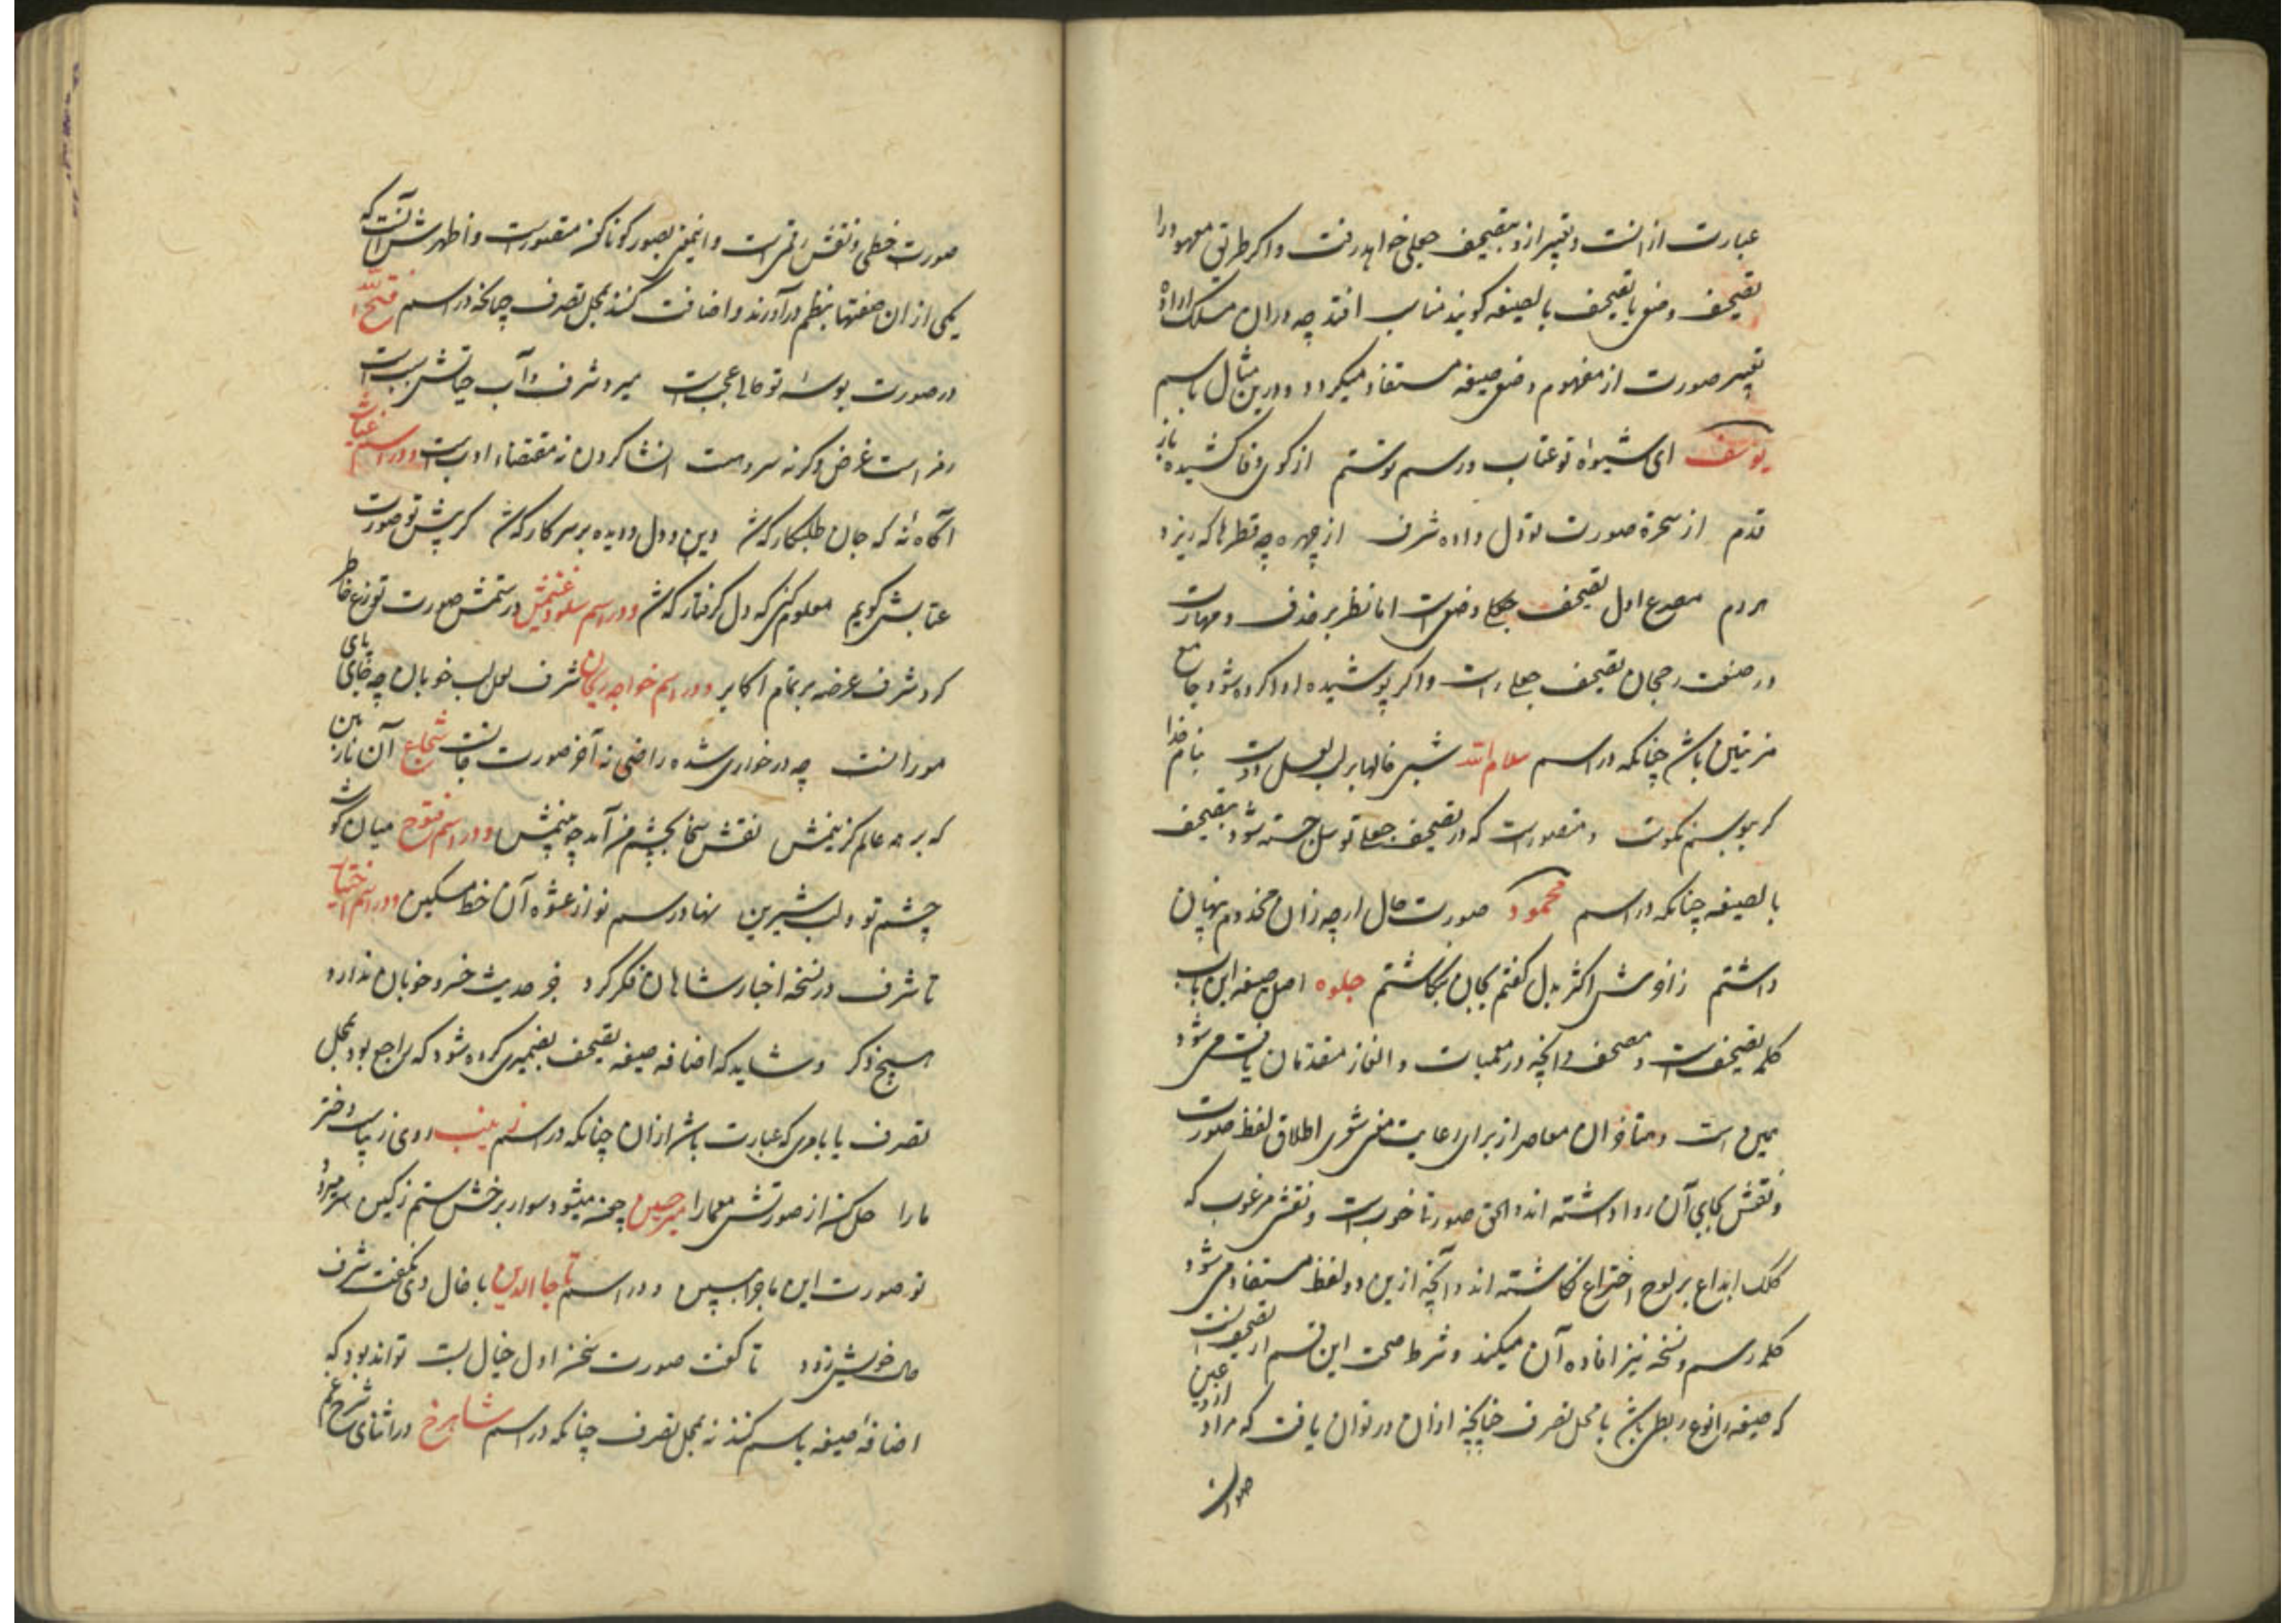 عبارت از انست و تعبیر ازو بتصحیف جعلی خواهد رفت و اگر طریق معهود را
تصحیف وضعی یا تصحیف بالصیغه گویند مناسب افتد چه دران مسلک اراده
تغییر صورت از مفهوم وضعی صیغه مستفاد میگردد و درین مثال باسم
یوسف ای شیوهٔ تو عتاب و رسم تو ستم از کوی وفا کشیدهٔ باز
قدم از سحرة صورت تو دل داده شرف از چهره چه قطرها که ریزد
هر دم مصرع اول تصحیف جعلی و وضعی است اما نظر بر حذف و مهارت
در صنعت رجحان تصحیف جعلی راست و اگر پوشیده ادا کرده شود جامع
مزیتین باشد چنانکه در اسم سلام الله شبی خالها بر لب لعل دوست بنام خدا
گر ببوسم نکوست و متصورست که در تصحیف جعلی توسل جسته شود بتصحیف
بالصیغه چنانکه در اسم محمود صورت حال ارچه زان مخدوم پنهان
داشتم زانوش اکثر بدل گفتم بجان بگاشتم جلوه اصل صیغه این باب
کلمه تصحیفست و مصحف و آنچه در معمیات و الغاز متقدمان یافت می شود
همین است و متاخران معاصر از برای رعایت معنی شعری اطلاق لفظ صورت
و نقش بجای آن روا داشته اند و الحق صورتی خوبست و نقشی مرغوب که
کلک ابداع بر لوح اختراع نگاشته اند و آنچه ازین دو لفظ مستفاد می شود
کلمه رسم و نسخه نیز افاده آن میکند و شرط صحت این قسم از تصحیف آنست
که صیغه را نوع ربطی باشد با محل تصرف چنانچه ازان در توان یافت که مراد ازو عین
صورت
صورت خطی و نقش رقمی است و اینمعنی بصور گوناگون متصورست و اظهرش آنست که
یکی از ان صیغتها بنظم در آورند و اضافت کنند بمحل تصرف چنانکه در اسم فتح الله
در صورت بوسهٔ تو حالی عجب است میرد شرف و آب حیاتش بلب است
رمز است غرض وگرنه سر دهنت افشا کردن نه مقتضاء ادب است و در اسم غیاث
آگاه نهٔ که جان طلبکار که شد دین و دل و دیده بر سر کار که شد گر پیش تو صورت
عتابش گویم معلوم کنی که دل گرفتار که شد و در اسم سلوغنمش در ستمش صورت توزع خاطر
کرد شرف عرضه بر تمام اکابر و در اسم خواجه ریحان شرف لعل لب خوبان چه جای پای
مورانست چه در خواری شده راضی نه آخر صورت جانست شجاع آن نازنین
که بر همه عالم گزینمش نقش سخا بچشم من آید چو بینمش و در اسم فتوح میان گوشه
چشم تو و لب شیرین نهاد رسم نو از عشوه آن خط مسکین و در اسم اختیار
تا شرف در نسخه اخبار شاهان فکر کرد جز حدیث خسرو خوبان ندارد
هیچ ذکر و شاید که اضافه صیغه تصحیف بضمیری کرده شود که راجع بود بمحل
تصرف یا بامری که عبارت باشد ازان چنانکه در اسم زینب روی زیبات دختر
مارا حل کند از صورتش معما را میر حسین چون میشود سوار برخش ستم ز کین سر میرود
نو صورت این ماجرا ببین و در اسم تاجا الدین با خال وی نگفت شرف
حال خویش زود تا گفت صورت سخن اول خیال بست تواند بود که
اضافهٔ صیغه باسم کنند نه بمحل تصرف چنانکه در اسم شاهرخ در اثنای شرح غم